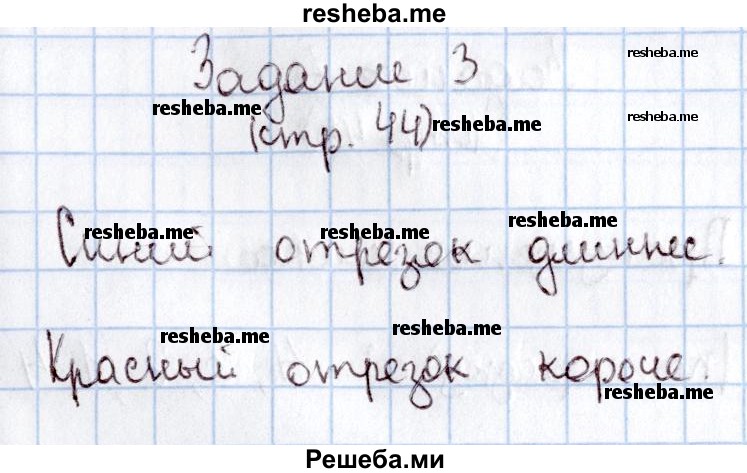 resheba.me
Задание 3
resheba.me
resheba.me
resheba.me
resheba.me
(стр. 44)
Синий отрезок длиннее.
resheba.me
resheba.me
resheba.me
Красный отрезок короче.
resheba.me
resheba.me
resheba.me
Решеба.ми